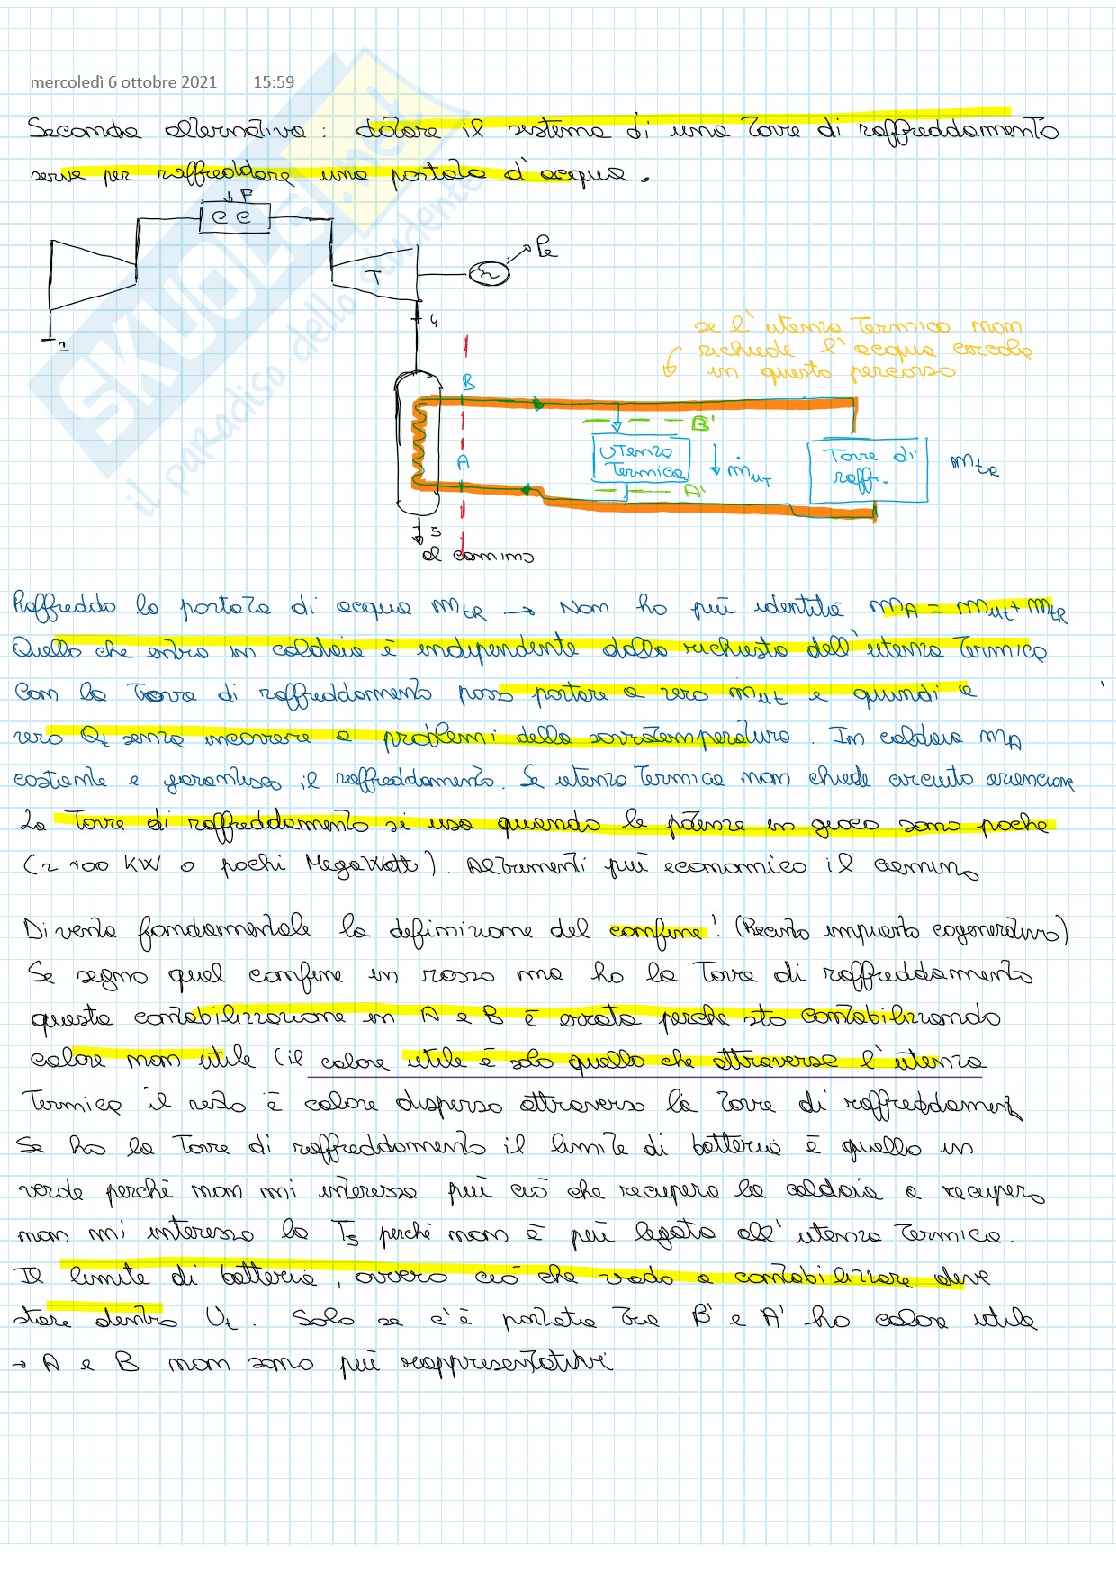 mercoledì 6 ottobre 2021 15:59
Seconda alternativa : dotare il sistema di una Torre di raffreddamento
serve per raffreddare una portata d'acqua .
F
CC
T
Pe
4
1
se l'utenza Termica non
richiede l'acqua circola
in questo percorso
B
B'
Utenza
Termica
ṁUT
Torre di
raff.
mtR
A
A'
5
al camino
Raffreddo la portata di acqua mtR → Non ho più identità mA = mut + mtR
Quello che entra in caldaia è indipendente dalla richiesta dell'utenza Termica
Con la Torre di raffreddamento posso portare a zero mut e quindi a
zero Qt senza incorrere a problemi della sovratemperatura. In caldaia mA
costante e garantisco il raffreddamento. Se utenza Termica non chiede circuito arancione
La Torre di raffreddamento si usa quando le potenze in gioco sono poche
(~ 100 KW o pochi MegaWatt). Altrimenti più economico il camino
Diventa fondamentale la definizione del confine! (Recinto impianto cogenerativo)
Se segno quel confine in rosso ma ho la Torre di raffreddamento
questa contabilizzazione in A e B è errata perché sto contabilizzando
calore non utile (il calore utile è solo quello che attraversa l'utenza
Termica il resto è calore disperso attraverso la Torre di raffreddament
Se ho la Torre di raffreddamento il limite di batteria è quello in
verde perché non mi interessa più ciò che recupera la caldaia a recupero
non mi interessa la T5 perché non è più legata all'utenza Termica.
Il limite di batteria, ovvero ciò che vado a contabilizzare deve
stare dentro Ut . Solo se c'è portata tra B' e A' ho calore utile
→ A e B non sono più rappresentativi
SKUOLA.net
il paradiso dello studente